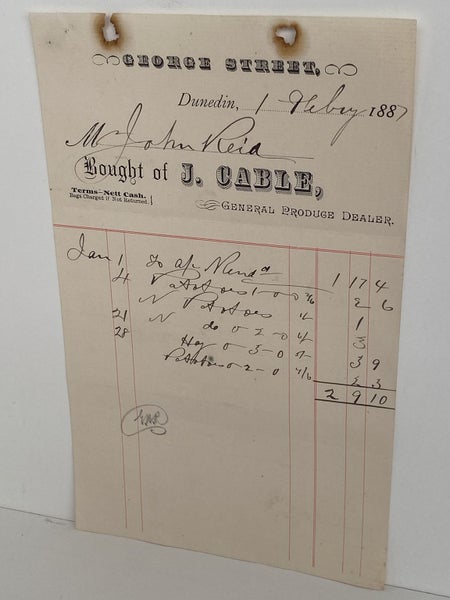 GEORGE STREET,
Dunedin, 1 Febry 1887
Mr John Reid
Bought of J. CABLE,
Terms—Nett Cash.
Bags Charged if Not Returned.
GENERAL PRODUCE DEALER.
Jan 1 To a/c Rendd 1 17 4
4 Potatoes 1-0-0 2/6 2 6
N Potatoes 1
21 N do 0-2-0 3
28 Hay 0-3-0 3 9
Potatoes 0-2-0 4/6 2 3
2 9 10